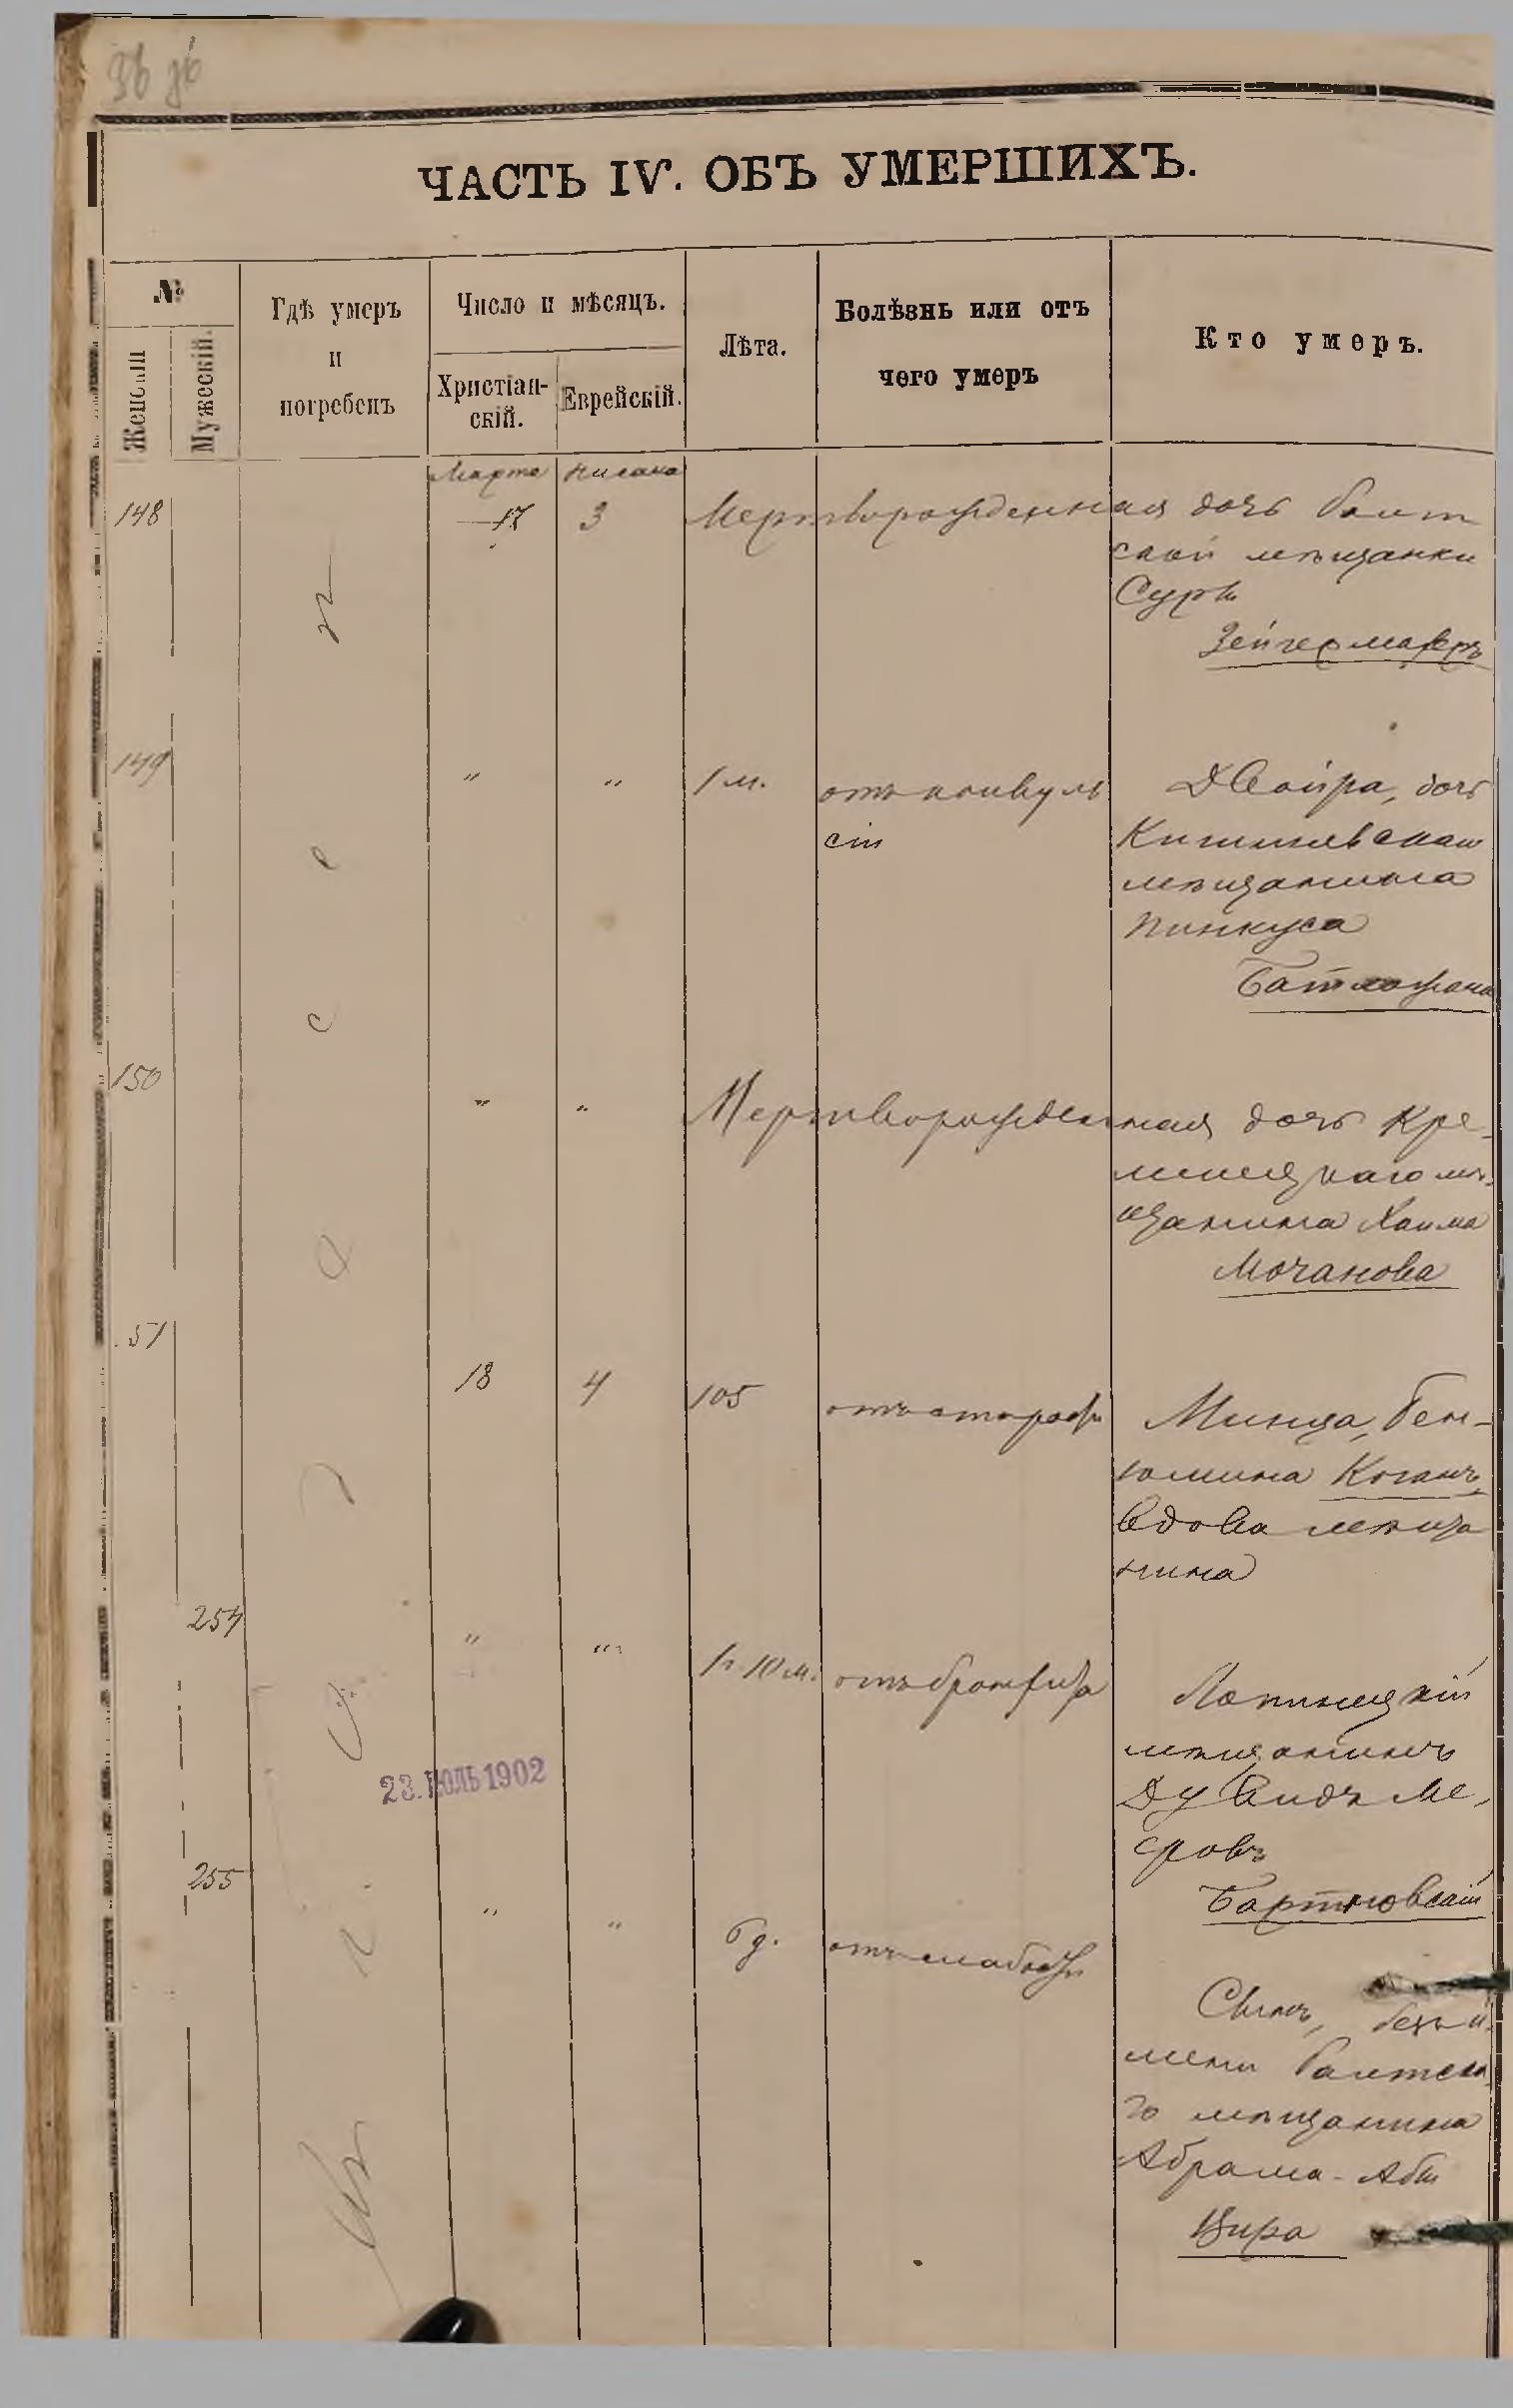 ЧАСТЬ IV. ОБЪ УМЕРШИХЪ.
№
Женскій
Мужескій.
Гдѣ умеръ
и
погребенъ
Число и мѣсяцъ.
Христіан-
скій.
Еврейскій.
Лѣта.
Болѣзнь или отъ
чего умеръ
Кто умеръ.
Марта Нисана
148 17 3 Мертворожденная дочь Балт
ской мѣщанки
Суры
Зейгермахеръ
149 " " 1 м. отъ конвуль
сіи
Двойра, дочь
Кишиневскаго
мѣщанина
Пинкуса
150 " " Мертворожденная дочь Кре-
менецкаго мѣ-
щанина Хаима
Мочанова
51 18 4 105 отъ старости
Минца, Бен-
юмина Коганъ,
вдова мѣща
нина
254 " " 1 г. 10 м. отъ бронхита
мѣщанинъ
Бартновскій
255 " " 6 д. отъ слабости
Сынъ, безъ и-
мени Балтска
го мѣщанина
Абрама-Абы
Цира
23. ІЮЛЬ 1902